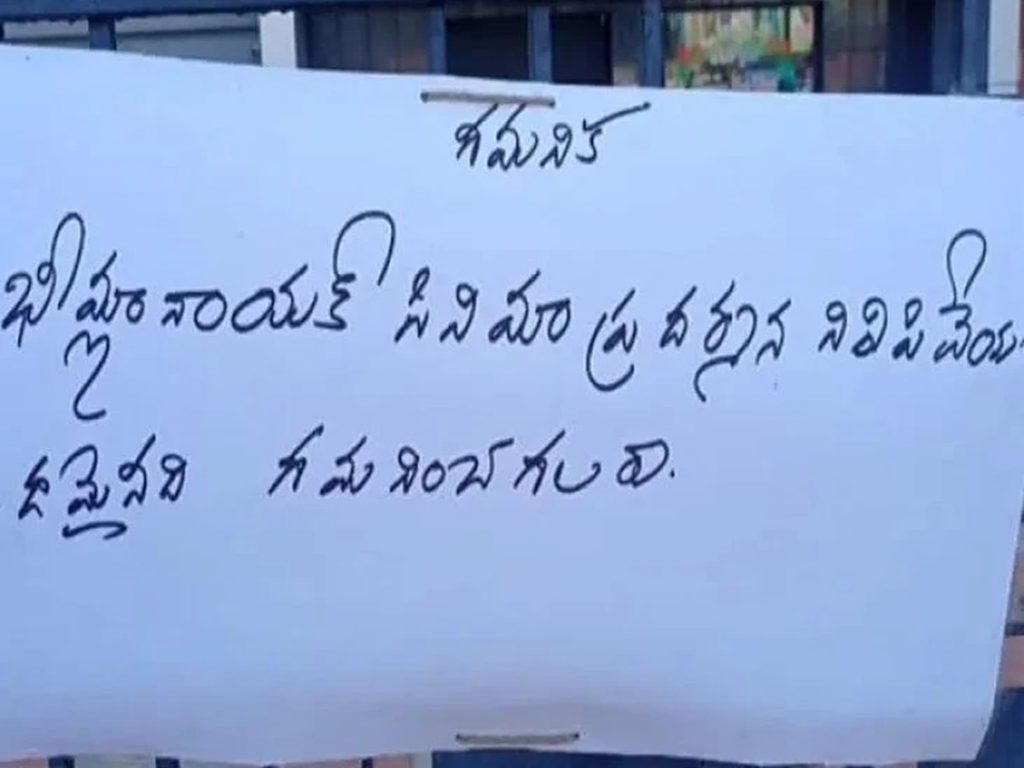 గమనిక
భీమ్లా నాయక్ సినిమా ప్రదర్శన నిలిపివేయ
డమైనది గమనించగలరు.